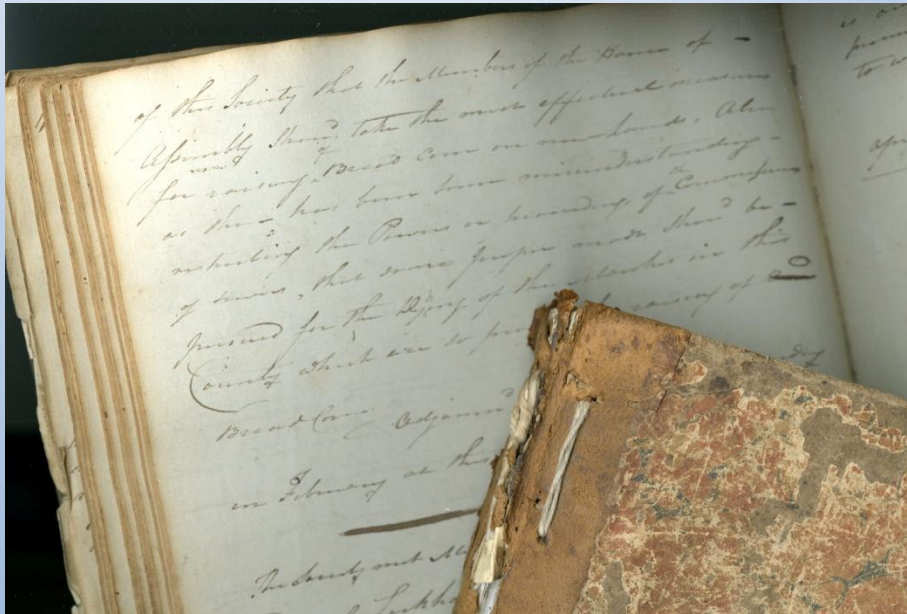 of this Society that the Members of the House of -
Assembly Should take the most effectual measures
for raising Bread Corn on new lands, Also
as there has been some misunderstanding -
respecting the Powers or proceedings of the Commissrs
of Sewers, that some proper mode Should be -
pursued for the Dyking of the Marshes in this
County which are so raising of
Bread Corn Adjourned
in February at this
The Society met